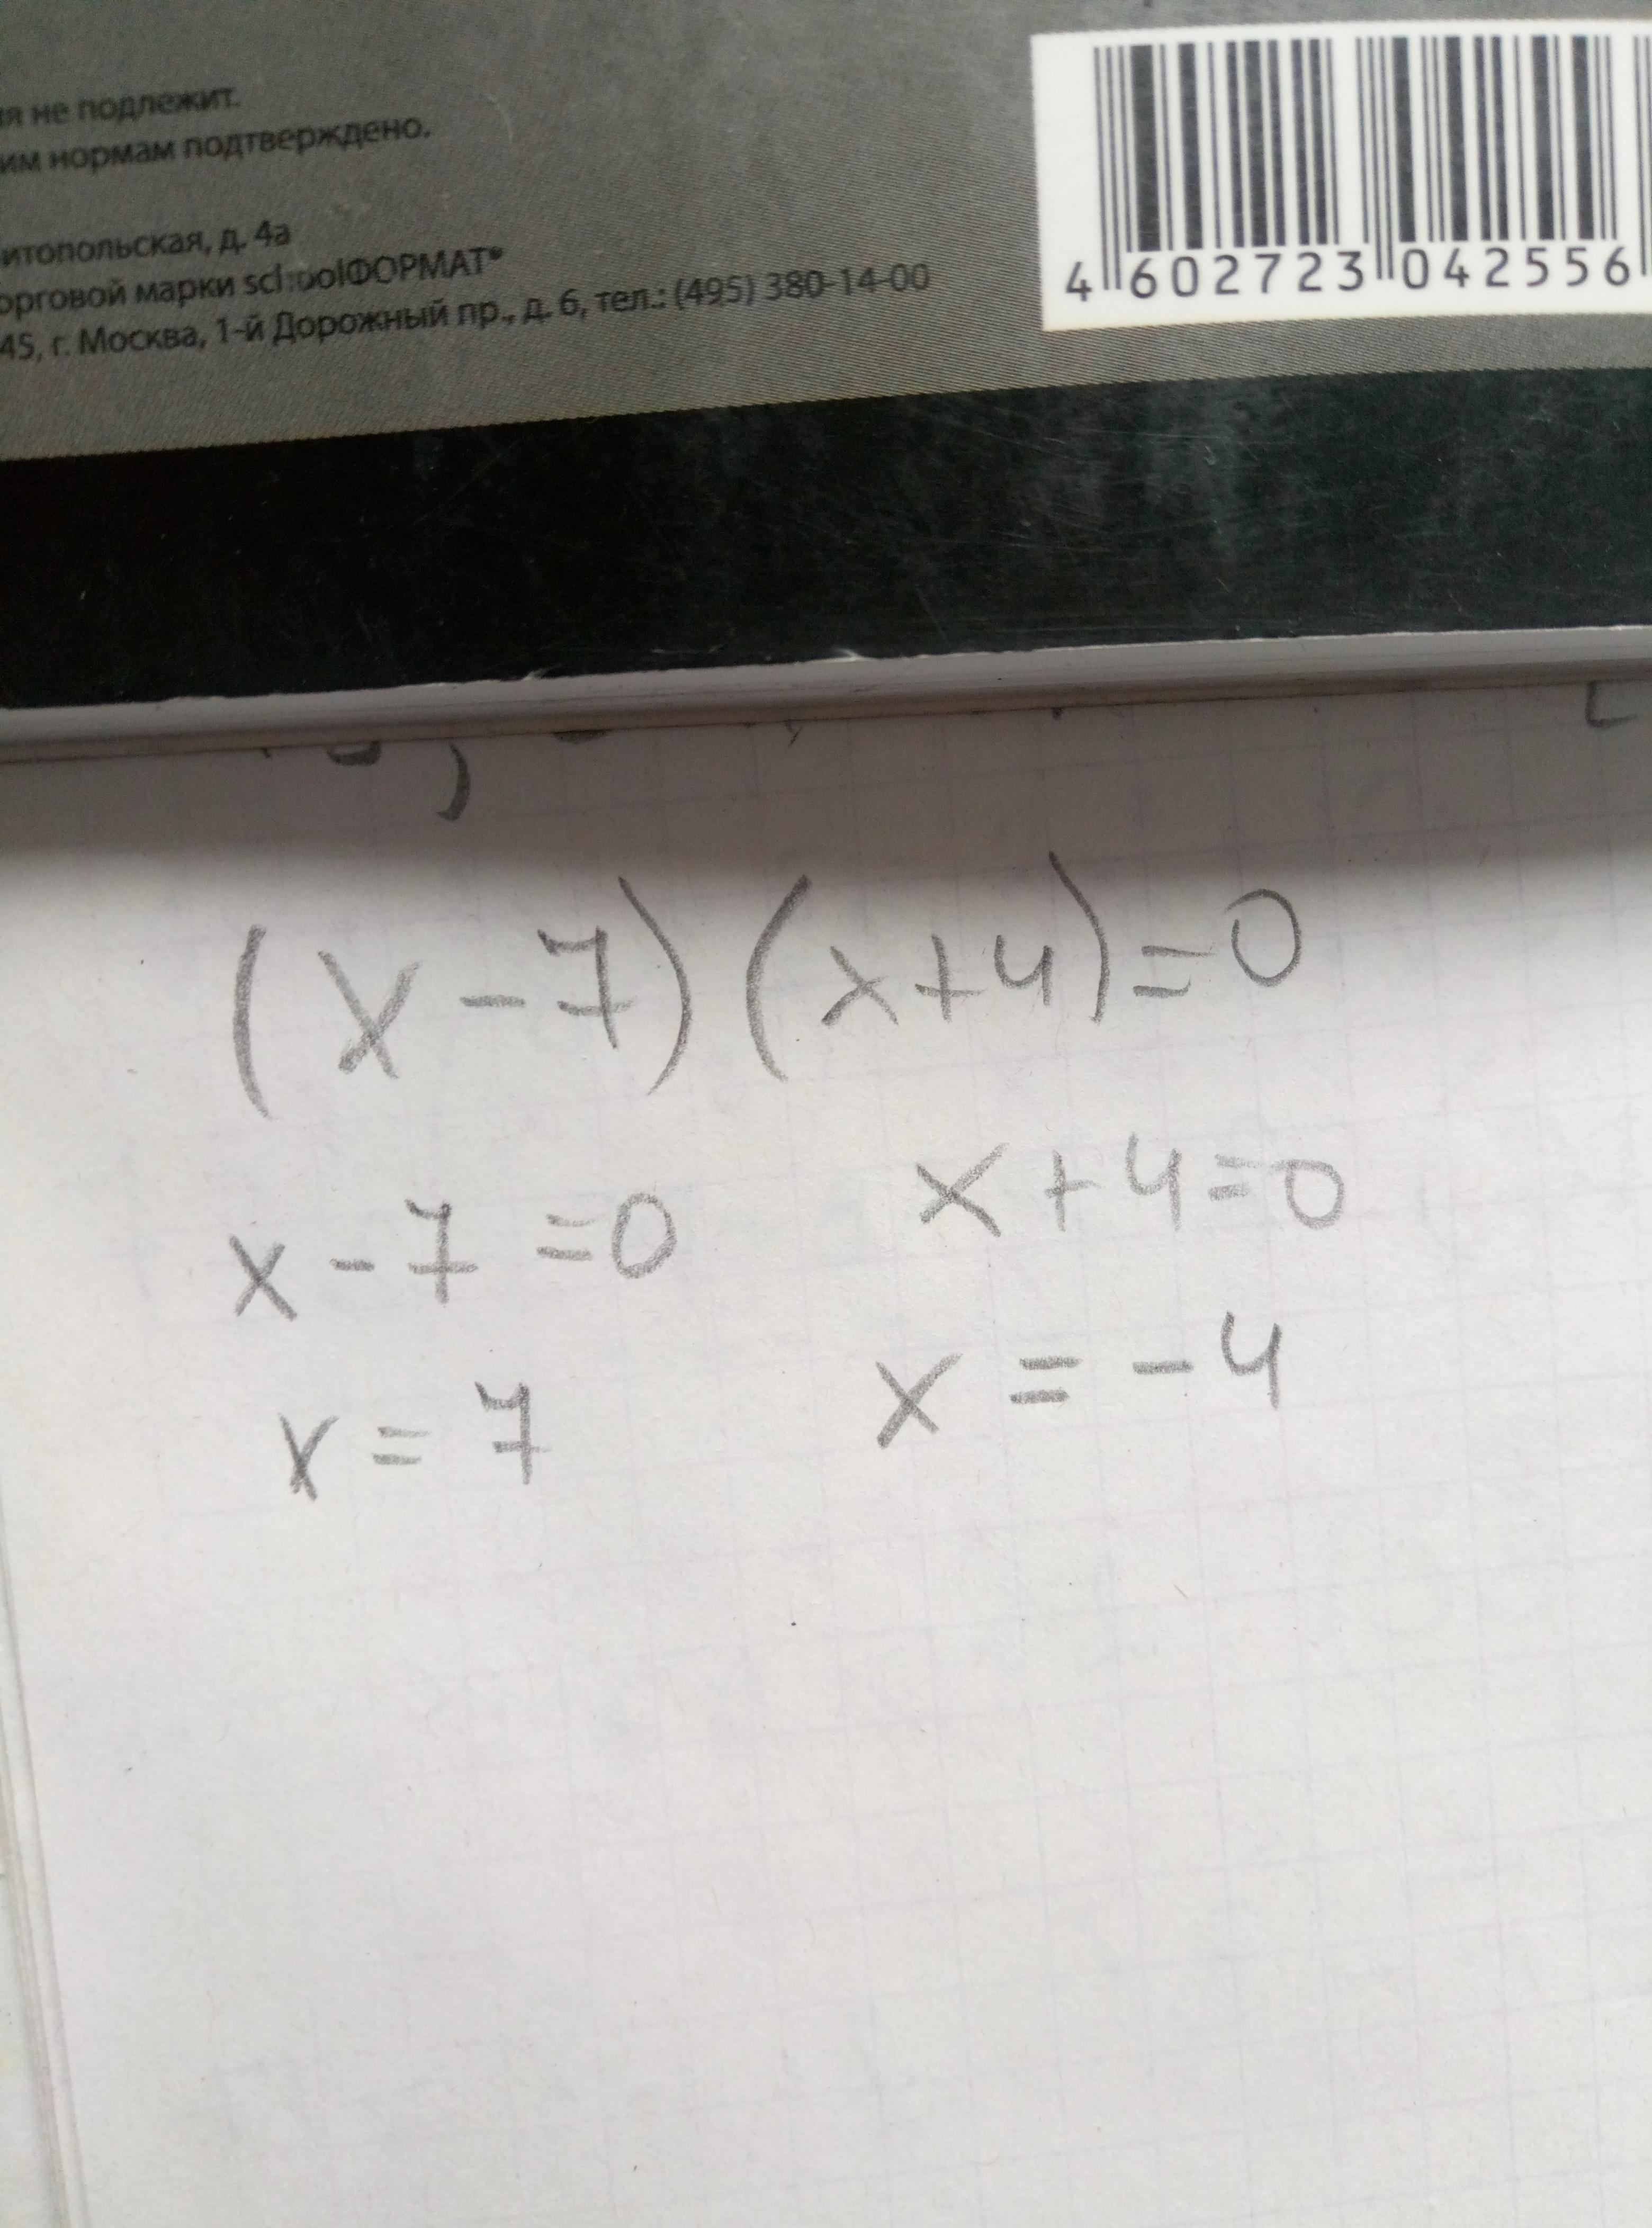 не подлежит.
нормам подтверждено.
д. 4а
марки schoolФОРМАТ®
45, г. Москва, 1-й Дорожный пр., д. 6, тел.: (495) 380-14-00
4 602723 042556
(x - 7)(x+4)=0
x - 7 =0 x + 4=0
x = 7 x = - 4